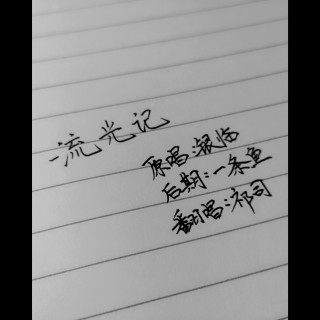 流光记
原唱:银临
后期:一条鱼
翻唱:祁司